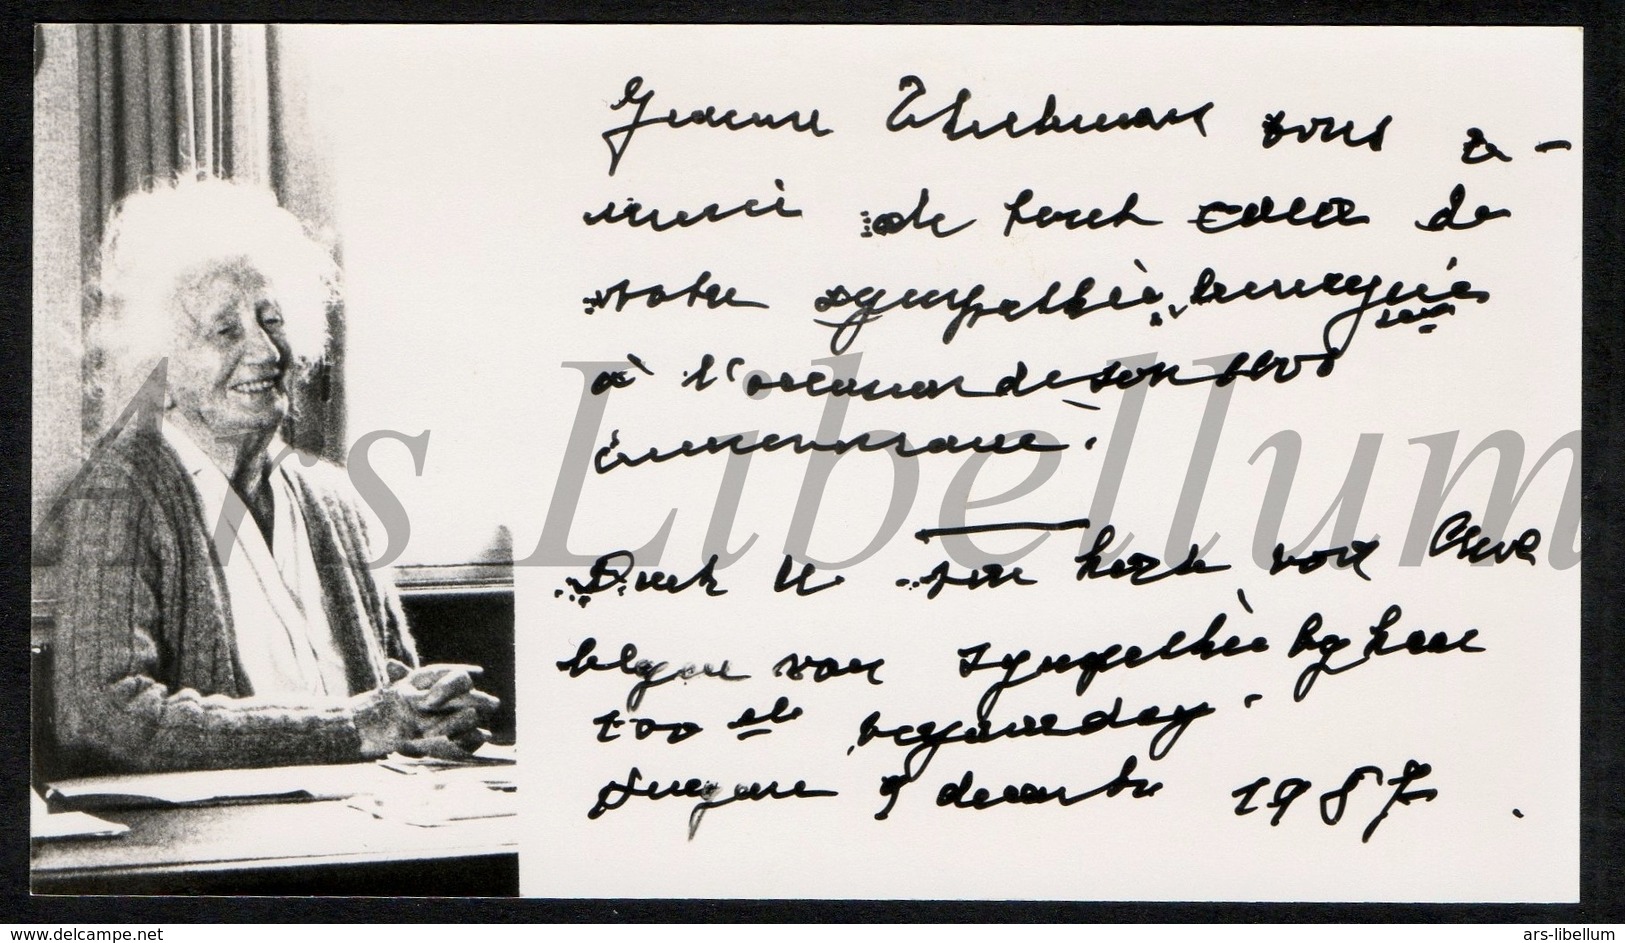 Jeanne Thielemans vous re-
mercie de tout cœur de
votre sympathie, témoignée
à l'occasion de son
anniversaire.
Dank U ten harte voor Uwe
blyken van sympathie by haar
100ste verjaardag.
9 décembre 1987.
Ars Libellum
www.delcampe.net
ars-libellum